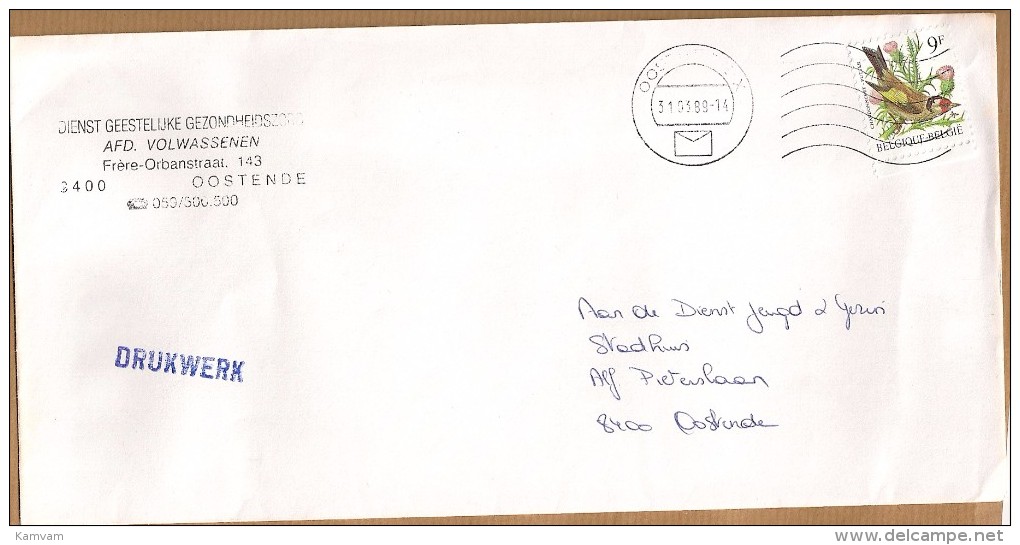 DIENST GEESTELIJKE GEZONDHEIDSZORG
AFD. VOLWASSENEN
Frère-Orbanstraat. 143
8400 OOSTENDE
059/500.500
31 03 89-14
9F
BELGIQUE-BELGIË
DRUKWERK
Aan de Dienst Jeugd & Gezin
Stadhuis
Alf Pieterslaan
8400 Oostende
Kamvam
www.delcampe.net